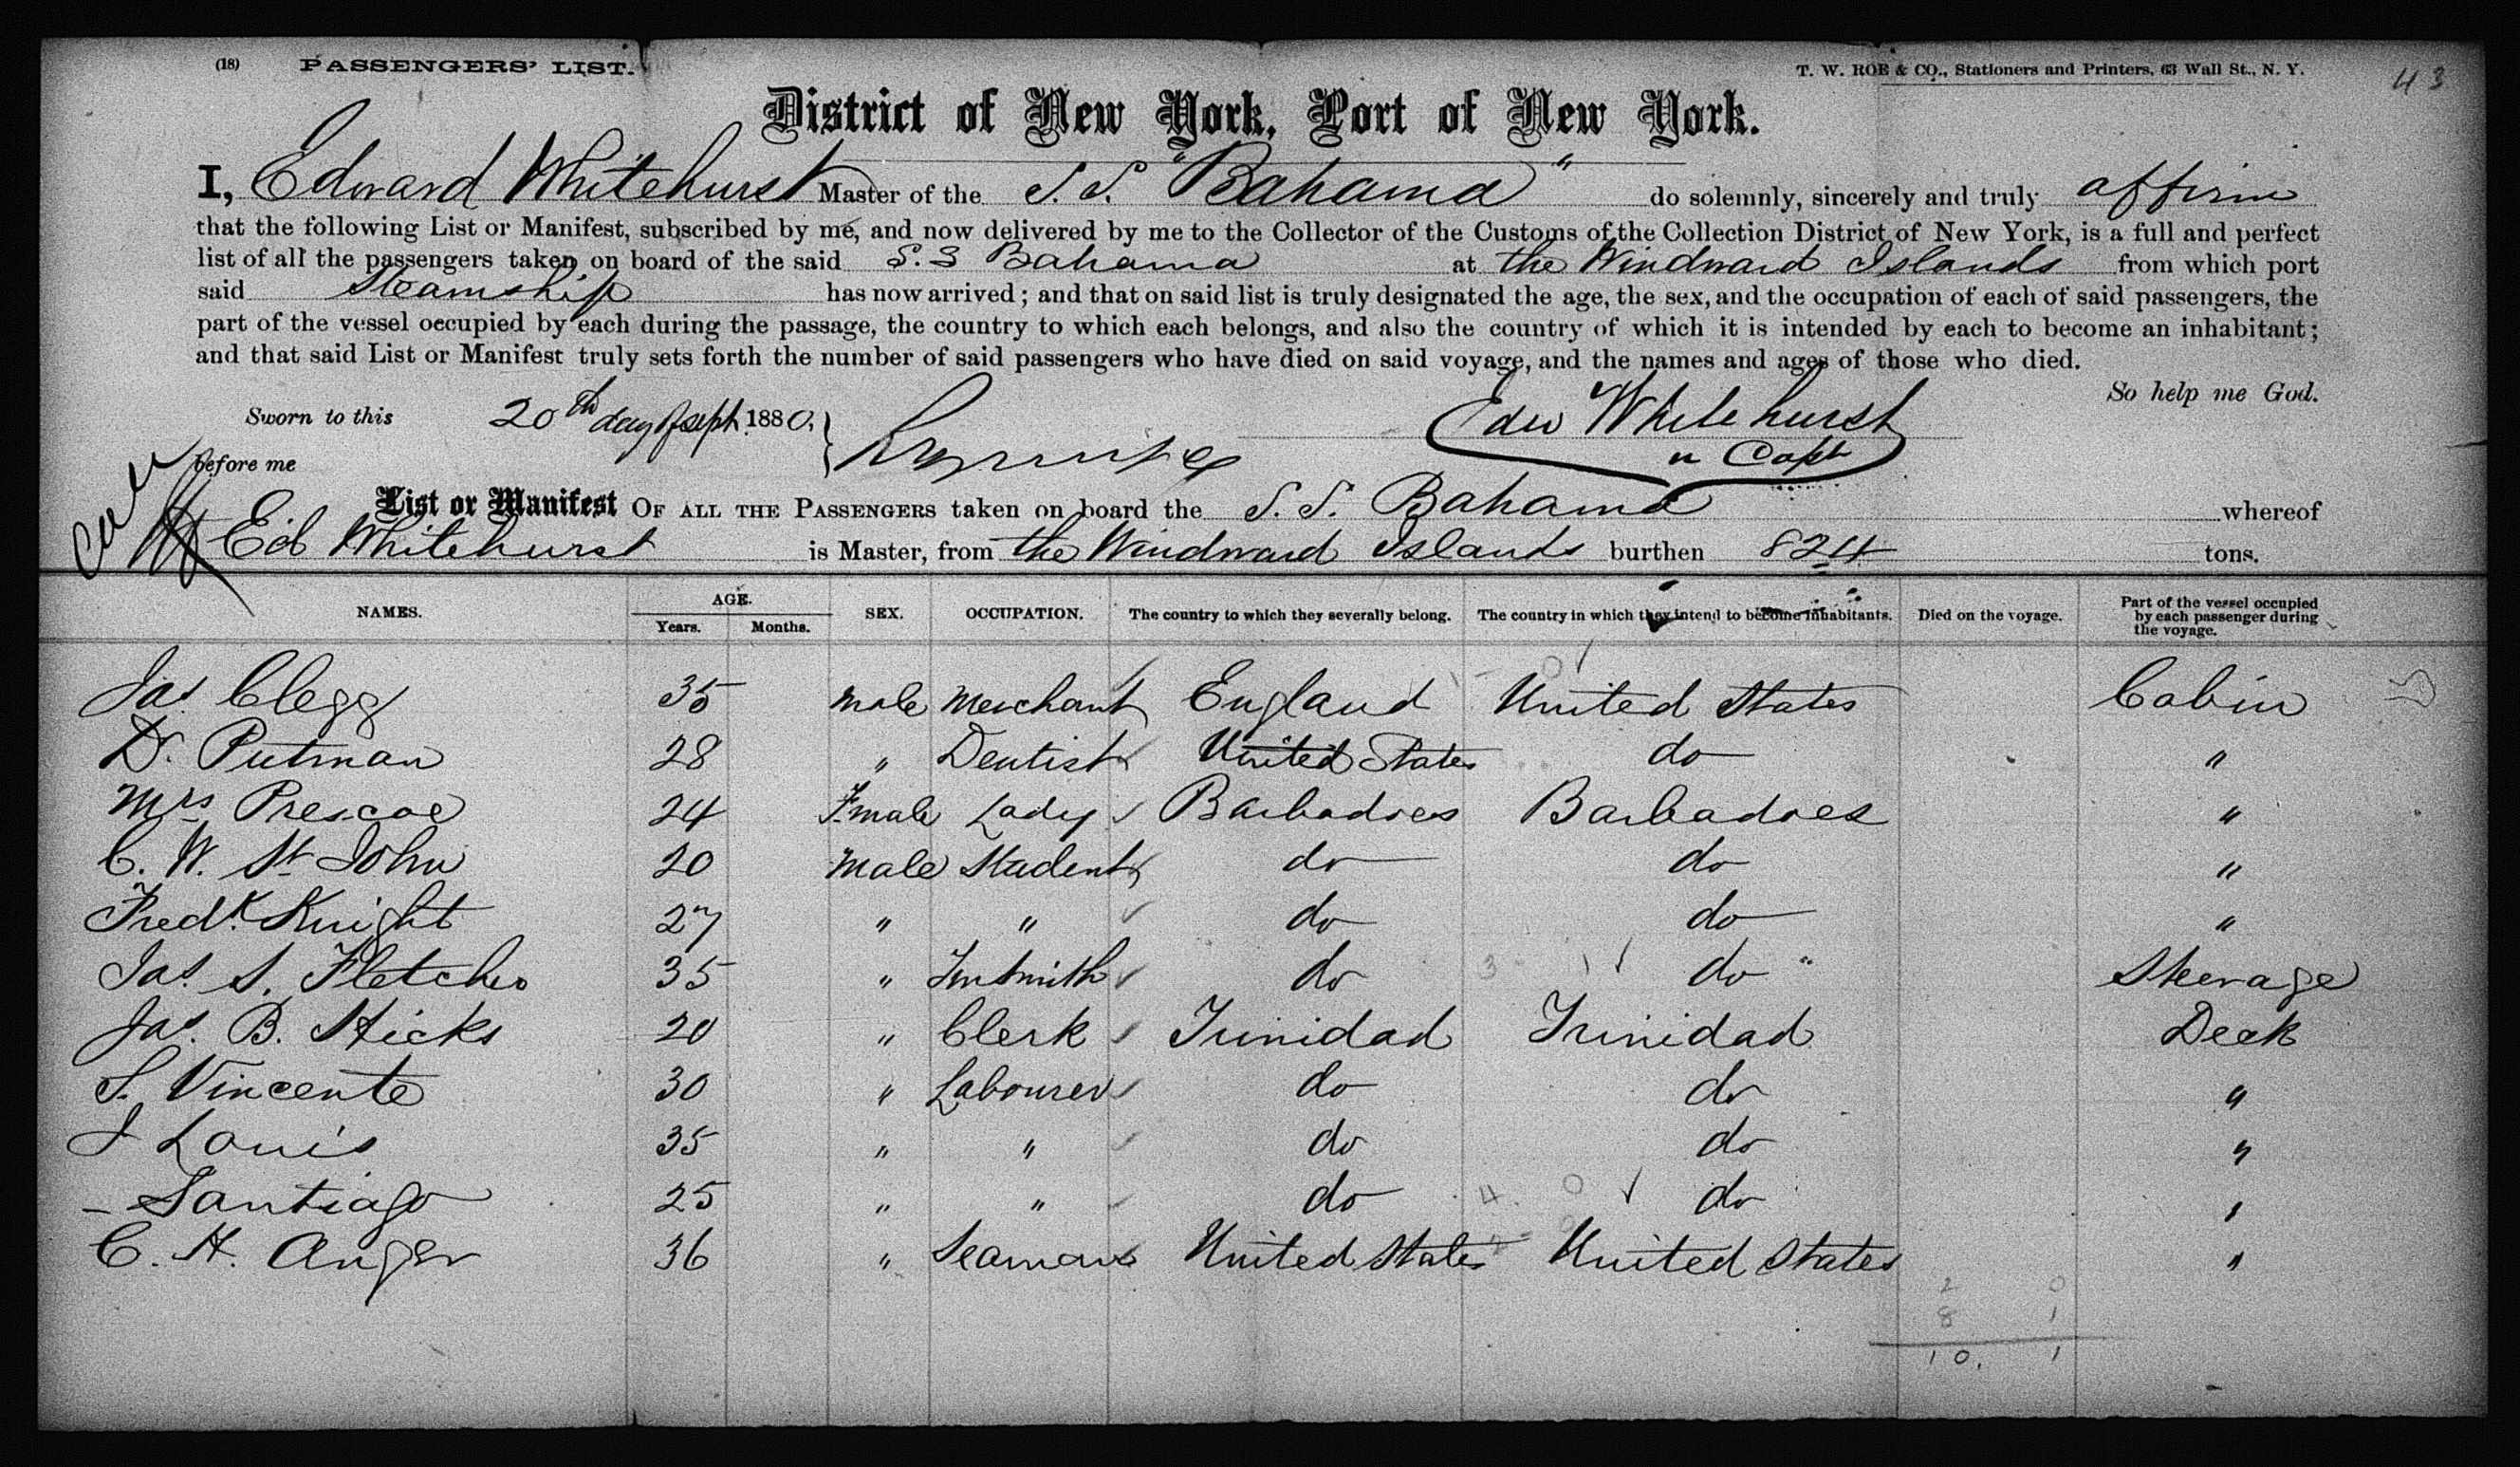 (18) PASSENGERS' LIST. T. W. ROE & CO., Stationers and Printers, 63 Wall St., N. Y. 43
District of New York, Port of New York.
I, Edward Whitehurst Master of the S. S. "Bahama" do solemnly, sincerely and truly affirm
that the following List or Manifest, subscribed by me, and now delivered by me to the Collector of the Customs of the Collection District of New York, is a full and perfect
list of all the passengers taken on board of the said S. S Bahama at the Windward Islands from which port
said Steamship has now arrived; and that on said list is truly designated the age, the sex, and the occupation of each of said passengers, the
part of the vessel occupied by each during the passage, the country to which each belongs, and also the country of which it is intended by each to become an inhabitant;
and that said List or Manifest truly sets forth the number of said passengers who have died on said voyage, and the names and ages of those who died.
So help me God.
Sworn to this 20th day of Sept 1880, Edw Whitehurst
before me Capt
List or Manifest OF ALL THE PASSENGERS taken on board the S. S. Bahama whereof
Ed Whitehurst is Master, from the Windward Islands burthen 824 tons.
NAMES. AGE. Years. Months. SEX. OCCUPATION. The country to which they severally belong. The country in which they intend to become inhabitants. Died on the voyage. Part of the vessel occupied by each passenger during the voyage.
Jas. Clegg 35 Male Merchant England United States Cabin
D. Putman 28 " Dentist United States do "
Mrs Prescoe 24 Fmale Lady Barbadoes Barbadoes "
C. W. St John 20 Male Student do do "
Fredk. Knight 27 " " do do "
Jas. S. Fletcher 35 " Tinsmith do do " Steerage
Jas. B. Hicks 20 " Clerk Trinidad Trinidad Deck
S. Vincente 30 " Labourer do do "
J Louis 35 " " do do "
- Santiago 25 " " do do "
C. H. Anger 36 " Seaman United States United States "
2 0
8 1
10. 1